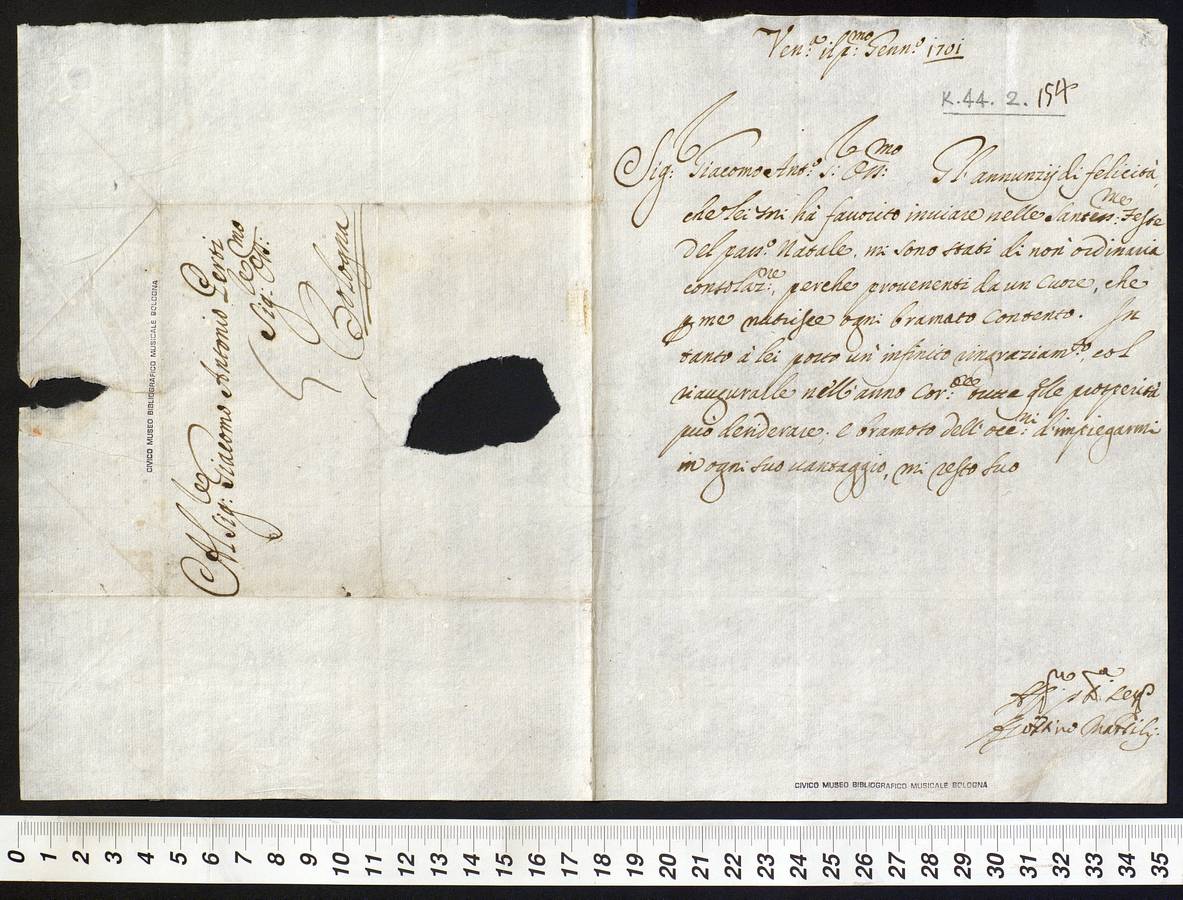 Al Sig:re Giacomo Antonio Perti
Sig:re Oss:mo
Bologna
CIVICO MUSEO BIBLIOGRAFICO MUSICALE BOLOGNA
Ven:a il p:mo Genn:o 1701
K.44. 2. 154
Sig:r Giacomo Ant:o S:r Oss:mo Gl'annunzij di felicità,
che lei mi hà favorito inviare nelle Santess:me Feste
del pass:o Natale, mi sono stati di non ordinaria
consolaz:ne, perche provenenti da un Cuore, che
p me nutrisce ogni bramato Contento. In
tanto à lei porto un infinito ringraziam:to, e col
inaugurarle nell'anno Cor:te tutte q̃lle prosperità
può desiderare; e bramoso dell'occ:ni d'impiegarmi
in ogni suo vantaggio, mi resto suo
Marsilij
CIVICO MUSEO BIBLIOGRAFICO MUSICALE BOLOGNA
0 1 2 3 4 5 6 7 8 9 10 11 12 13 14 15 16 17 18 19 20 21 22 23 24 25 26 27 28 29 30 31 32 33 34 35